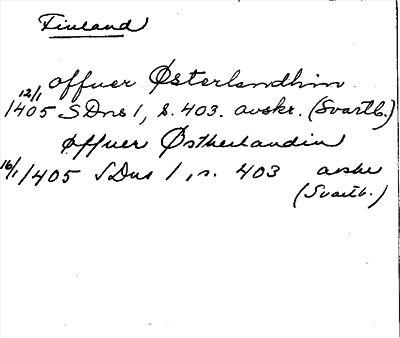 Finland
offuer Østerlandhin
12/1 1405 SDns 1, s. 403. avskr. (Svartb.)
offuer Østherlandin
16/1 1405 SDns 1, s. 403 avskr
(Svartb.)